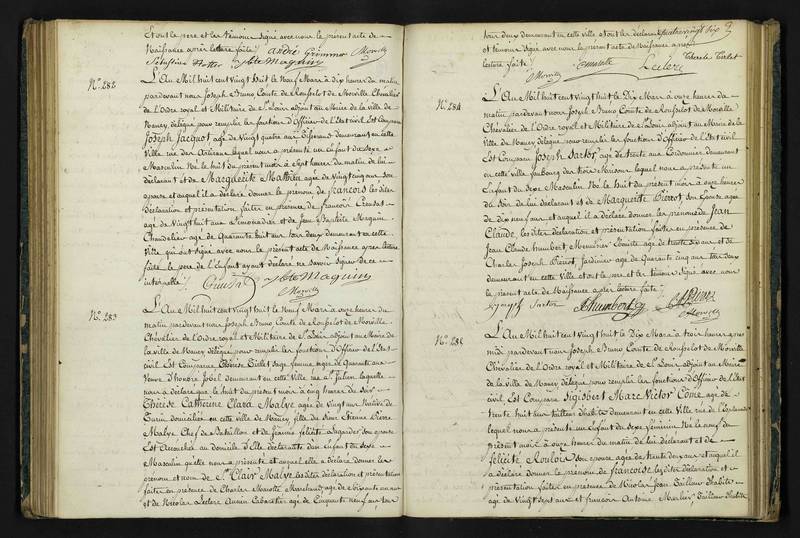 Et ont le pere et les témoins signé avec nous le present acte de
Naissance après lecture faite André Grimmer
Jbte Maguin Morville
N.o 282
L'An Mil huit cent vingt huit le Neuf Mars à dix heures du matin
pardevant nous Joseph Bruno Comte de Rouselot de Morville Chevalier
de l'Ordre royal et Militaire de St. Louis adjoint au Maire de la ville de
Nancy délégué pour remplir les fonctions d'Officier de l'Etat civil Est Comparu
Joseph Jacquot agé de vingt quatre ans demeurant en cette
Ville rue des lequel nous a présenté un Enfant du Sexe
Masculin Né le huit du présent mois à sept heures du matin de lui
déclarant et de Marguerite Mathieu agée de vingt cinq ans son
épouse et auquel il a déclaré donner le prénom de François les dites
déclaration et présentation faites en présence de François
agé de vingt huit ans Limonadier et de Jean Baptiste Maguin
Chandelier agé de Quarante huit ans tous deux demeurant en cette
Ville qui ont signé avec nous le present acte de Naissance après lecture
faite le pere de l'Enfant ayant déclaré ne savoir signer de ce
interpellé Jbte Maguin
Morville
N.o 283
L'An Mil huit cent vingt huit le Neuf Mars à onze heures du
matin pardevant nous Joseph Bruno Comte de Rouselot de Morville
Chevalier de l'Ordre royal et Militaire de St. Louis adjoint au Maire de
la ville de Nancy délégué pour remplir les fonctions d'Officier de l'Etat
civil Est Comparue Thérèse Tirlet Sage femme agée de Quarante ans
Veuve d'honoré Jobel demeurant en cette Ville rue St. Julien laquelle
nous a déclaré que le huit du present mois à cinq heures du soir
Thérèse Catherine Clara Malye agée de vingt ans
domiciliée en cette ville de Nancy fille du Sieur Etienne Pierre
Malye Chef de Bataillon et de Jeanne félicité son épouse
Est Accouchée au domicile d'Elle déclarante d'un Enfant du Sexe
Masculin qu'elle nous a présenté et auquel elle a déclaré donner les
prenom et nom de St. Clair Malye les dites déclaration et présentation
faites en présence de Charles Marchand agé de soixante ans
et de Nicolas Leclerc Ancien Cabaretier agé de Cinquante Neuf ans tous
tous deux demeurant en cette ville et ont les déclarante
et témoins signé avec nous le present acte de Naissance après
lecture faite Thérèse Tirlet
Morville Leclerc
N.o 284
L'An Mil huit cent vingt huit le Dix Mars à onze heures du
matin pardevant nous Joseph Bruno Comte de Rouselot de Morville
Chevalier de l'Ordre royal et Militaire de St. Louis adjoint au Maire de la
Ville de Nancy délégué pour remplir les fonctions d'Officier de l'Etat civil
Est Comparu Joseph Sartor agé de trente ans Cordonnier demeurant
en cette ville faubourg des trois Maisons lequel nous a présenté un
Enfant du Sexe Masculin Né le huit du présent mois à onze heures
du Soir de lui déclarant et de Marguerite Pierrot, son Epouse agée
de dix neuf ans et auquel il a déclaré donner les prénoms de Jean
Claude, les dites déclaration et présentation faites en présence de
Jean Claude humbert Menuisier agé de trente ans et de
Charles Joseph Pierrot, Jardinier agé de Quarante cinq ans tous deux
demeurant en cette Ville et ont le pere et les témoins signé avec nous
le present acte de Naissance après lecture faite
Sartor JC humbert Morville
N.o 285
L'An Mil huit cent vingt huit le Dix Mars à trois heures après
midi pardevant nous Joseph Bruno Comte de Rouselot de Morville
Chevalier de l'Ordre royal et Militaire de St. Louis adjoint au Maire
de la ville de Nancy délégué pour remplir les fonctions d'Officier de l'Etat
civil, Est Comparu Sigisbert Marc Victor Come, agé de
trente huit ans tailleur d'habits demeurant en cette Ville rue de l'Esplanade
lequel nous a présenté un Enfant du Sexe féminin Né le neuf du
présent mois à onze heures du matin de lui déclarant et de
félicité Roulois son épouse agée de trente deux ans et auquel il
a déclaré donner le prénom de françoise, les dites déclaration et
présentation faites en présence de Nicolas Jean Tailleur d'habits
agé de Vingt sept ans et françois Antoine Marlier, Tailleur d'habits